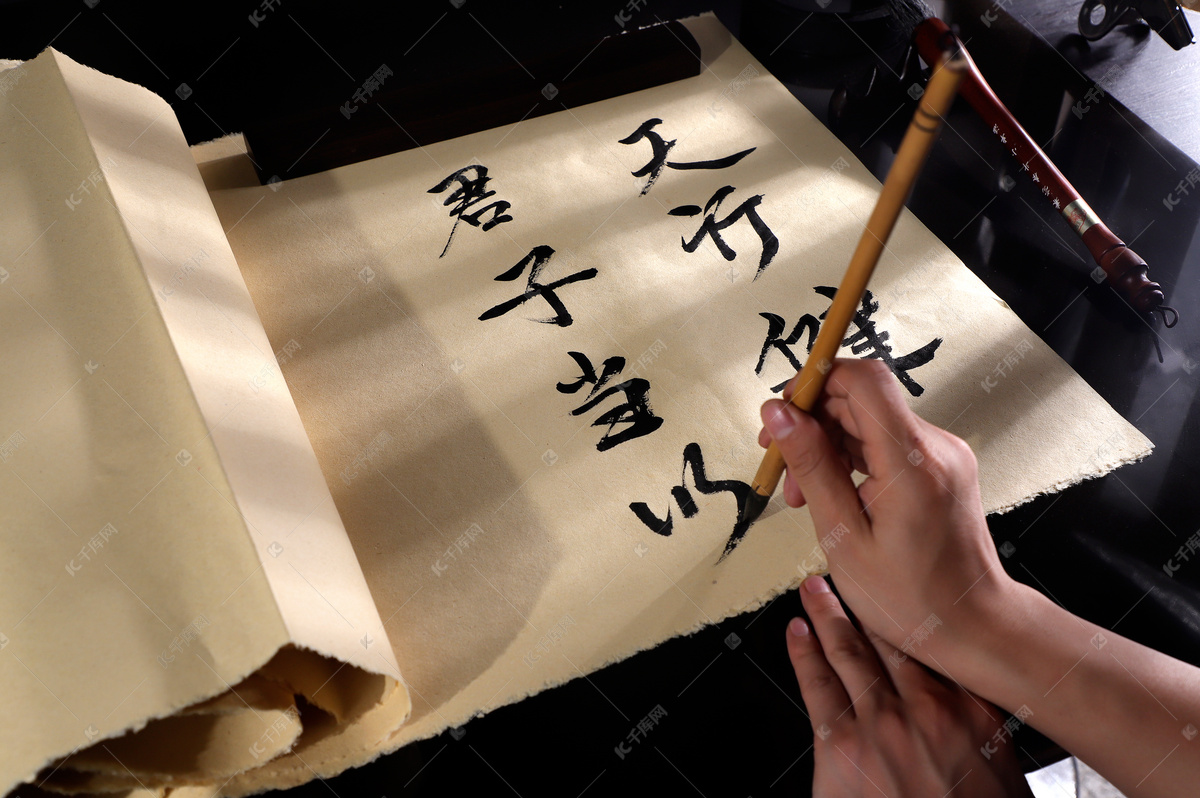 天行健
君子当以
千库网